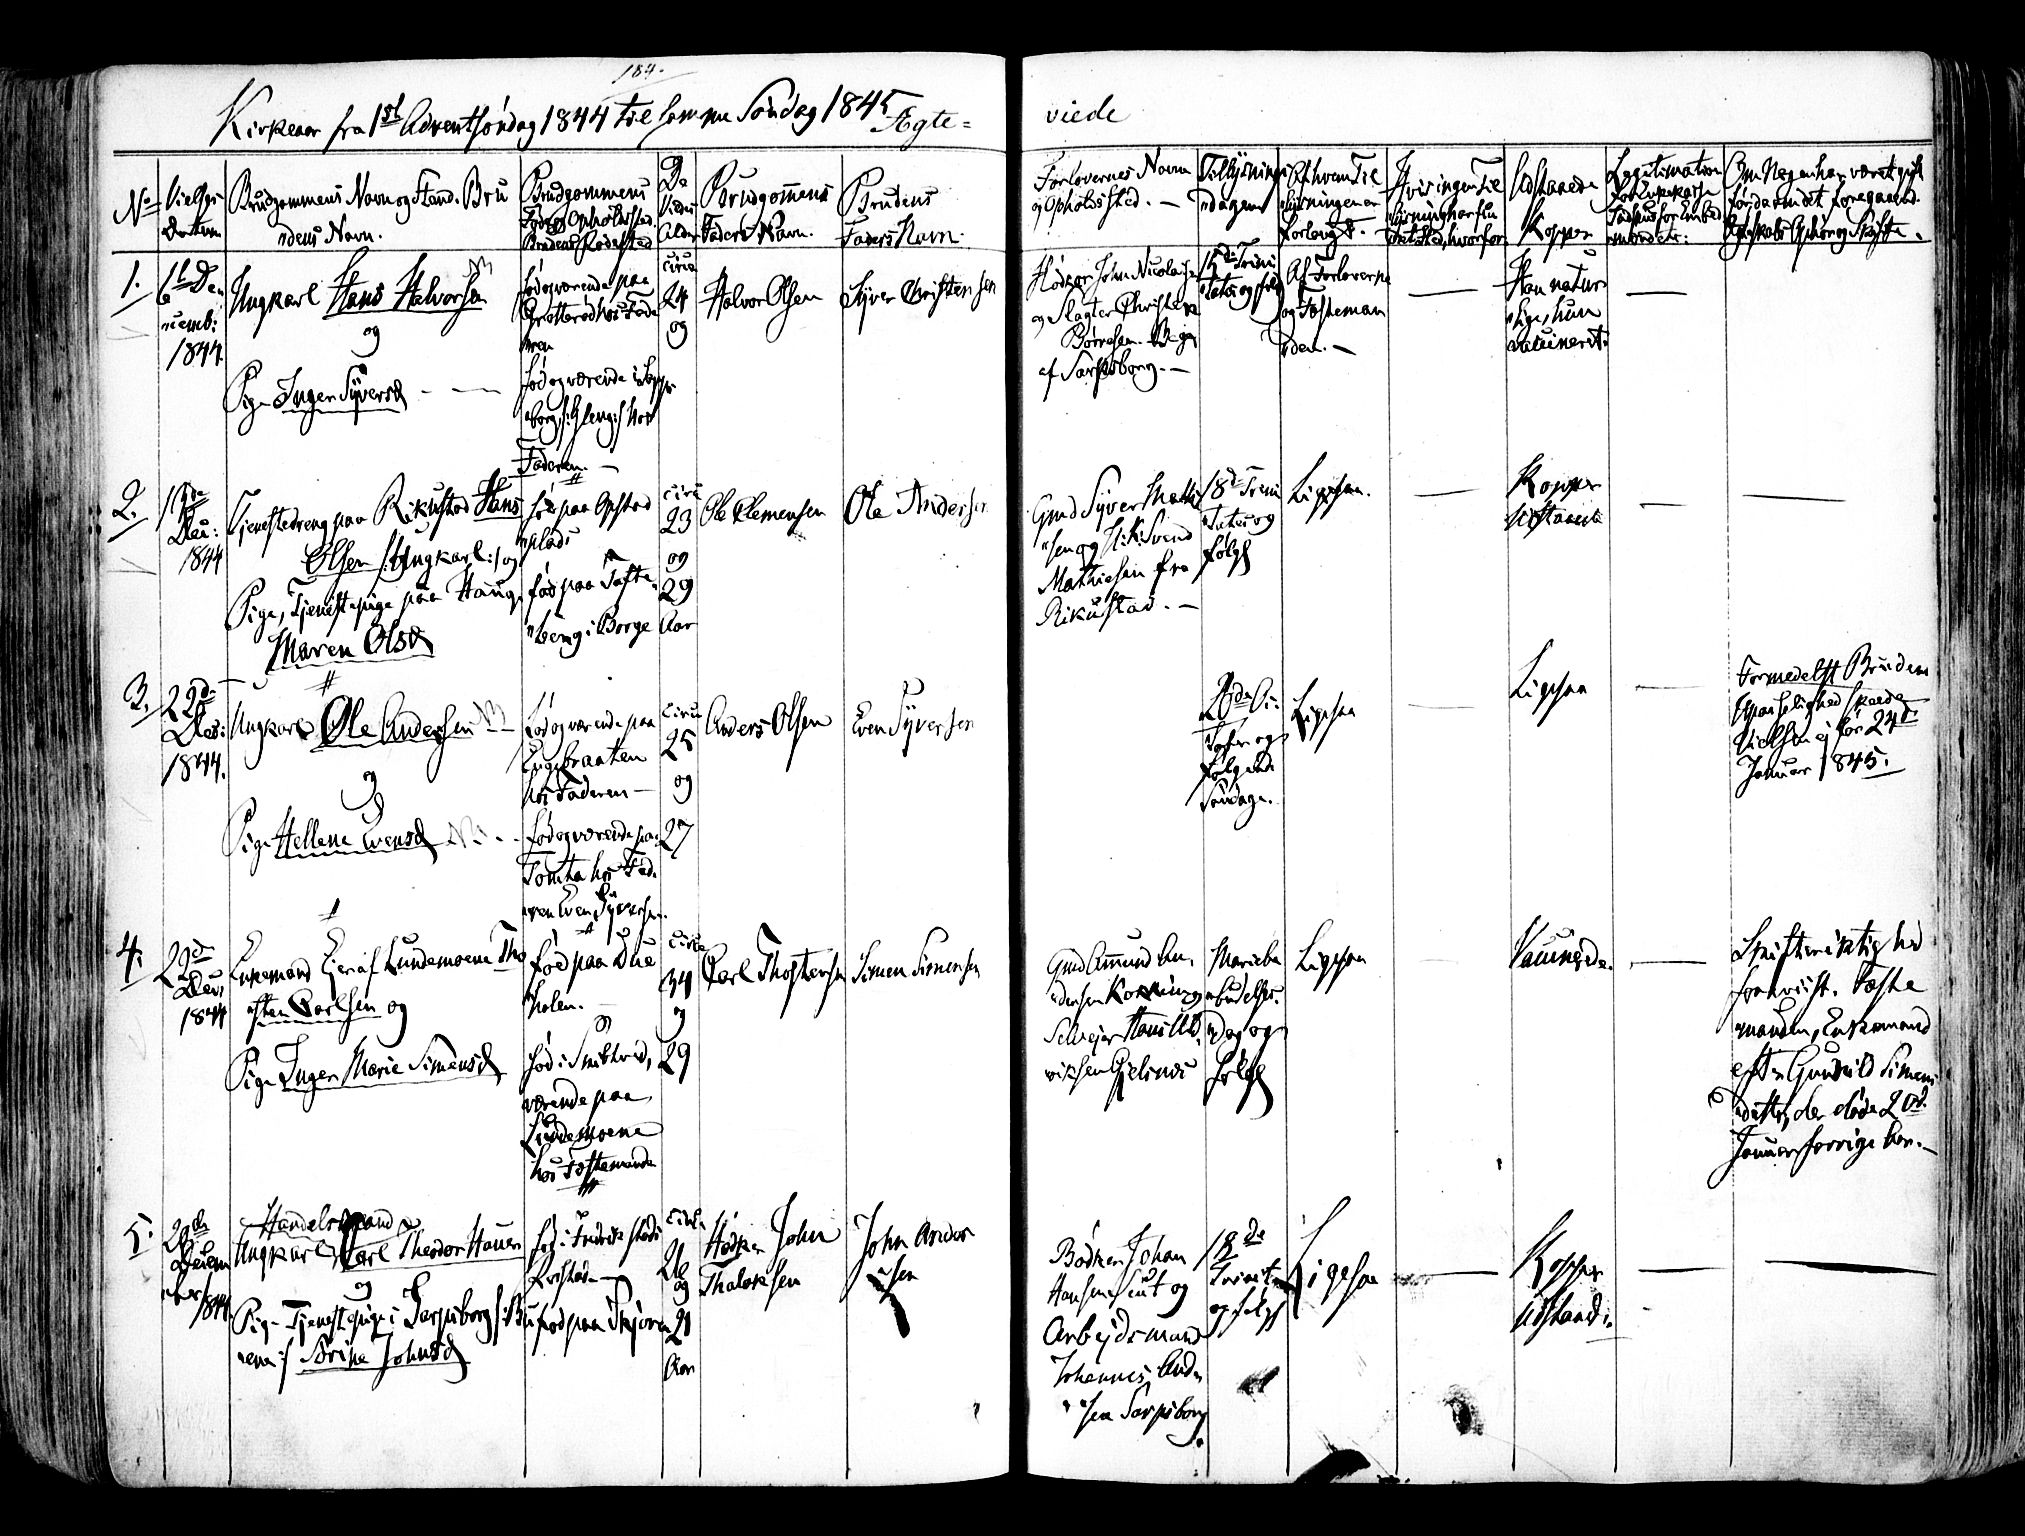 184.
Kirkeaar fra 1ste Adventsöndag 1844 til samme Söndag 1845
Ægte= viede
No
Vielses
Datum
Brudgommens Navn og Stand. Bru
dens Navn.
Brudgommens
Föde og Opholdssted.
Brudens Födested
De
Viedes
Alder
Brudgomens
Faders Navn.
Brudens
Faders Navn.
Forlovernes Navn
og Opholdssted. —
Tillysnings
dagene
Af hvem Til
lysningen er
forlangt.
Hvis ingen Til
lysning har fun
det Sted, hvorfor
Udstaaede
Kopper
Legitimation
Om Nogen har været gift
för da om det foregaaende
Ægteskabs Ophör og Skifte.
1.
1ste De
cemb:
1844.
Ungkarl Hans Halvorsen
og
Pige Inger Syversd
föd og værende paa
Grotteröd hos Fade
ren
föd og værende i
hos
Faderen. —
circa
24
og
Halvor Olsen
Syver Christensen
Hödker John Nicolaisen
og Slagter Christen
Börresen. Begge
af Sarpsborg. —
Trini
tatis og fölg
Af Forloverne
og Fösteman
den. —
—
Han natur
lige, hun
vaccineret.
—
2.
13de
Dec:
1844
Tjenestedreng paa Rikustad Hans
Olsen /:Ungkarl:/ og
Pige, Tjenestepige paa Hauge
Maren Olsd
föd paa Opstad
plads
föd paa Tofte
berg i Borge
circa
23
og
29
Aar
Ole Clemensen
Ole Andersen
Gmd Syver Mathi
sen og H:K: Svend
Mathiesen fra
Rikustad. —
18de Trini
tatis og
fölgd
Ligesaa.
—
Kopper
Udstaaede
—
—
3.
22de
Dec:
1844.
Ungkarl Ole Andersen
og
Pige Hellene Evensd
föd og værende paa
Engebraaten
hos Faderen —
föd og værende paa
Tomta hos Fad
eren Even Syversen.
circa
25
og
27
Anders Olsen
Even Syversen
Söndage.
Ligesaa
—
Ligesaa
—
Formedelst Brudens
Upasselighed skeede
Vielsen ej för 24de
Januar 1845.
4.
29de
Dec.
1844
Enkemand Ejer af Lundemoene Tho
rsten Carlsen og
Pige Inger Marie Simensd
föd paa Due
holen.
föd i Smiltröd,
værende paa
Lundemoene
hosFöstemande
circa
34
og
29
Carl Thorstensen
Simen Simensen
Gmd Amund An
dersen Korning
Selvejer Hans Ul
riksen Gjelsnes
Mariebe
budelses
dag og
fölgd
Ligesaa
—
Vaccinerede.
—
Skifterigtighed
forevist. Föste
manden, Enkemand
efter Gunild Simens
datter, der döde 20de
Januar forrige Aar. —
5.
28de
Decem
ber
1844
Handelsmand
Ungkarl Carl Theodor Hauen
og
Pige Tjenestepige i Sarpsborg
Serine Johnsd
föd i Fredrikstad
föd paa Skjören
circa
26
og
21
Aar
Hödker John
Thalaksen
John Ander
sen
Bödker Johan
Hansen og
Arbejdsmand
Johannes And
sen Sarpsborg
18de
Trinit
og fölgd
Ligesaa
—
Kopper
Udstaaed:
—
—